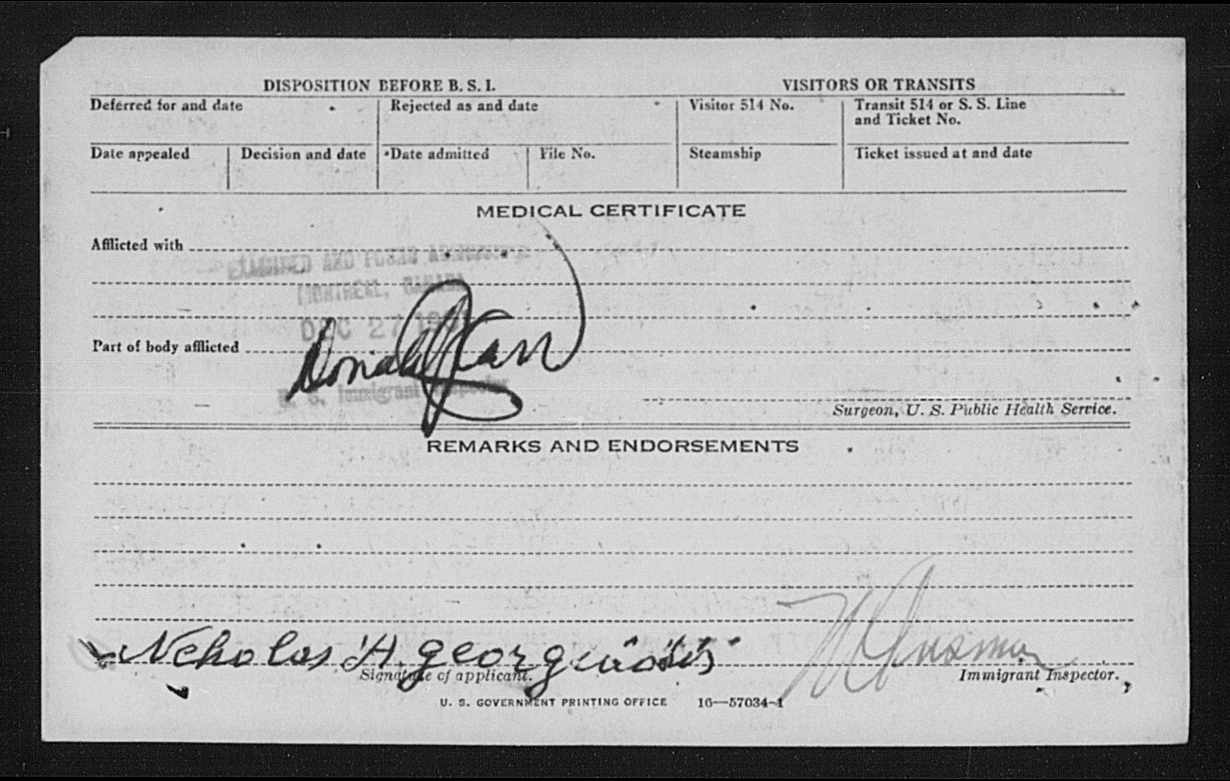 DISPOSITION BEFORE B. S. I.
VISITORS OR TRANSITS
Deferred for and date
Rejected as and date
Visitor 514 No.
Transit 514 or S. S. Line
and Ticket No.
Date appealed
Decision and date
Date admitted
File No.
Steamship
Ticket issued at and date
MEDICAL CERTIFICATE
Afflicted with
EXAMINED AND
MONTREAL, CANADA
DEC 27
Part of body afflicted
Donald J Carr
U. S. Immigrant Inspector
Surgeon, U. S. Public Health Service.
REMARKS AND ENDORSEMENTS
Ncholas A.
Signature of applicant.
Immigrant Inspector.
U. S. GOVERNMENT PRINTING OFFICE 16—57034-1